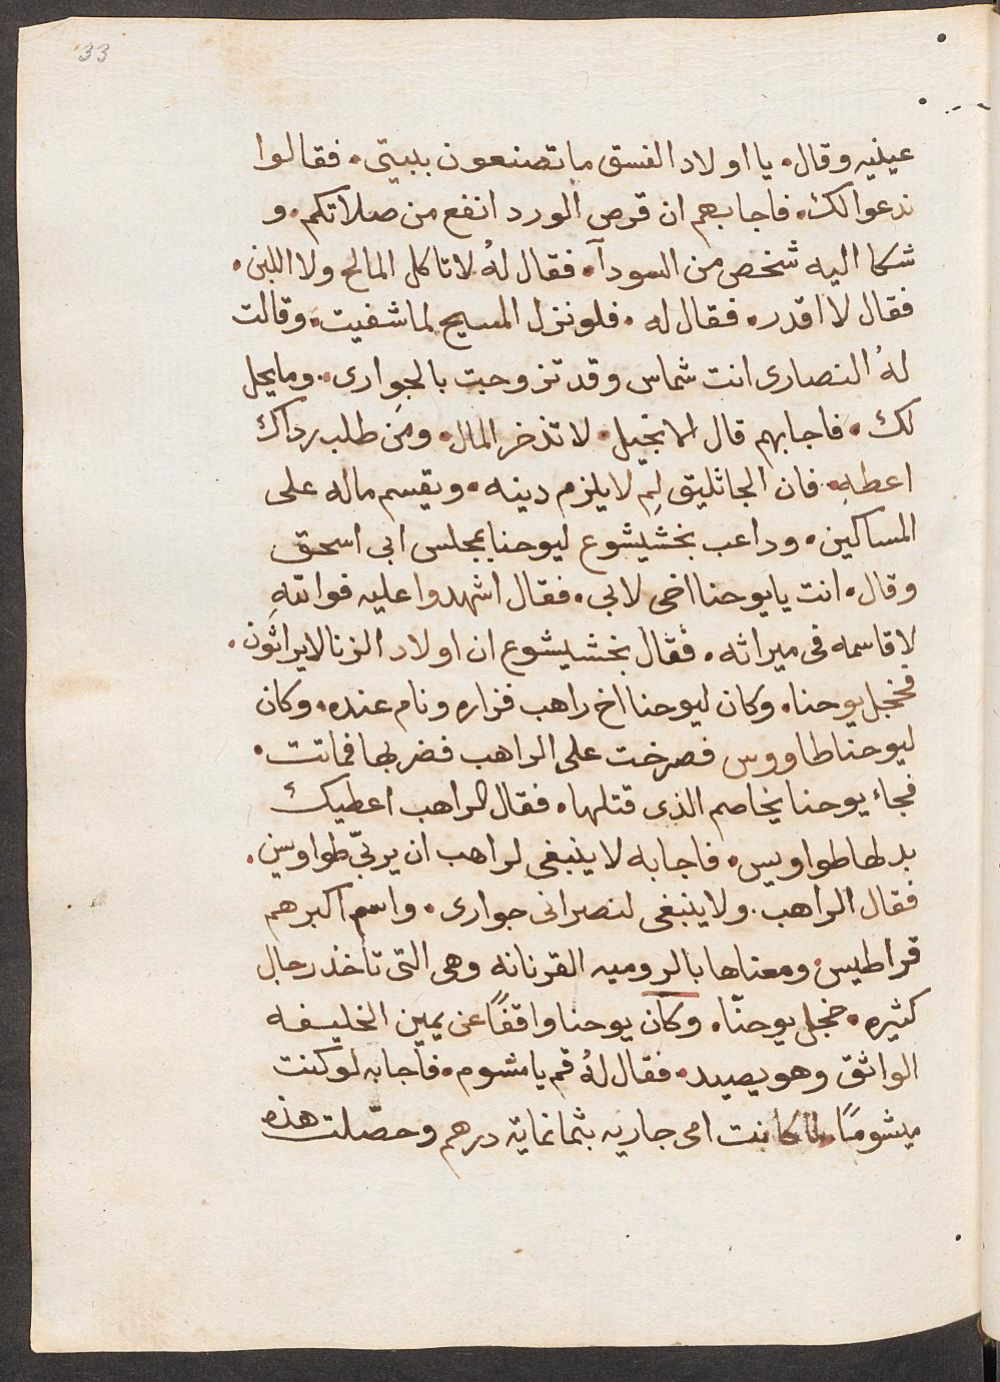 33
عينيه وقال. يا اولاد الفسق ما تصنعون ببيتى. فقالوا
ندعوا لك. فاجابهم ان قرص الورد انفع من صلاتكم. و
شكا اليه شخص من السودآ. فقال لهُ لا تاكل المالح ولا اللبن.
فقال لا اقدر. فقال له. فلو نزل المسيح لما شفيت. وقالت
لهُ النصارى انت شماس وقد تزوجت بالجوارى. وما يحل
لك. فاجابهم قال الانجيل. لا تذخر المال. ومن طلب رداك
اعطهِ. فان الجاثليق لِمَ لا يلزم دينه. ويقسم ماله على
المساكين. وداعب بخشيشوع ليوحنا بمجلس ابى اسحق
وقال. انت يا يوحنا اخى لابى. فقال اشهدوا عليه فواللهِ
لاقاسمه فى ميراثه. فقال بخشيشوع ان اولاد الزنا لا يراثون.
فخجل يوحنا. وكان ليوحنا اخ راهب فزاره ونام عنده. وكان
ليوحنا طاووس فصرخت على الراهب فضربها فماتت.
فجاء يوحنا يخاصم الذى قتلها. فقال الراهب اعطيك
بدلها طواويس. فاجابه لا ينبغى لراهب ان يربّى طواويس.
فقال الراهب. ولا ينبغى لنصرانى جوارى. واسم اكبرهم
قراطيس. ومعناها بالروميه القرنانه وهى التى تأخذ رجال
كثيره. فخجل يوحنّا. وكان يوحنا واقفًا عن يمين الخليفه
الواثق وهو يصيد. فقال لهُ قم يا مشوم. فاجابه لو كنت
ميشومًا. لما كانت امى جاريه بثمانماية درهم وحصّلت هذه